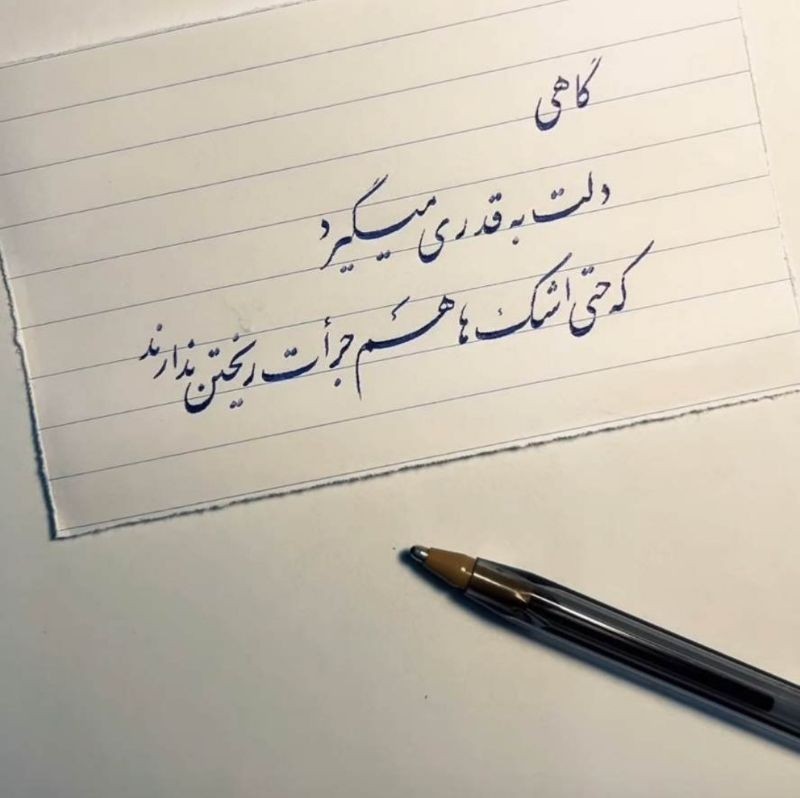 گاهی
دلت به قدری میگیرد
که حتی اشک ها هم جرأت ریختن ندارند